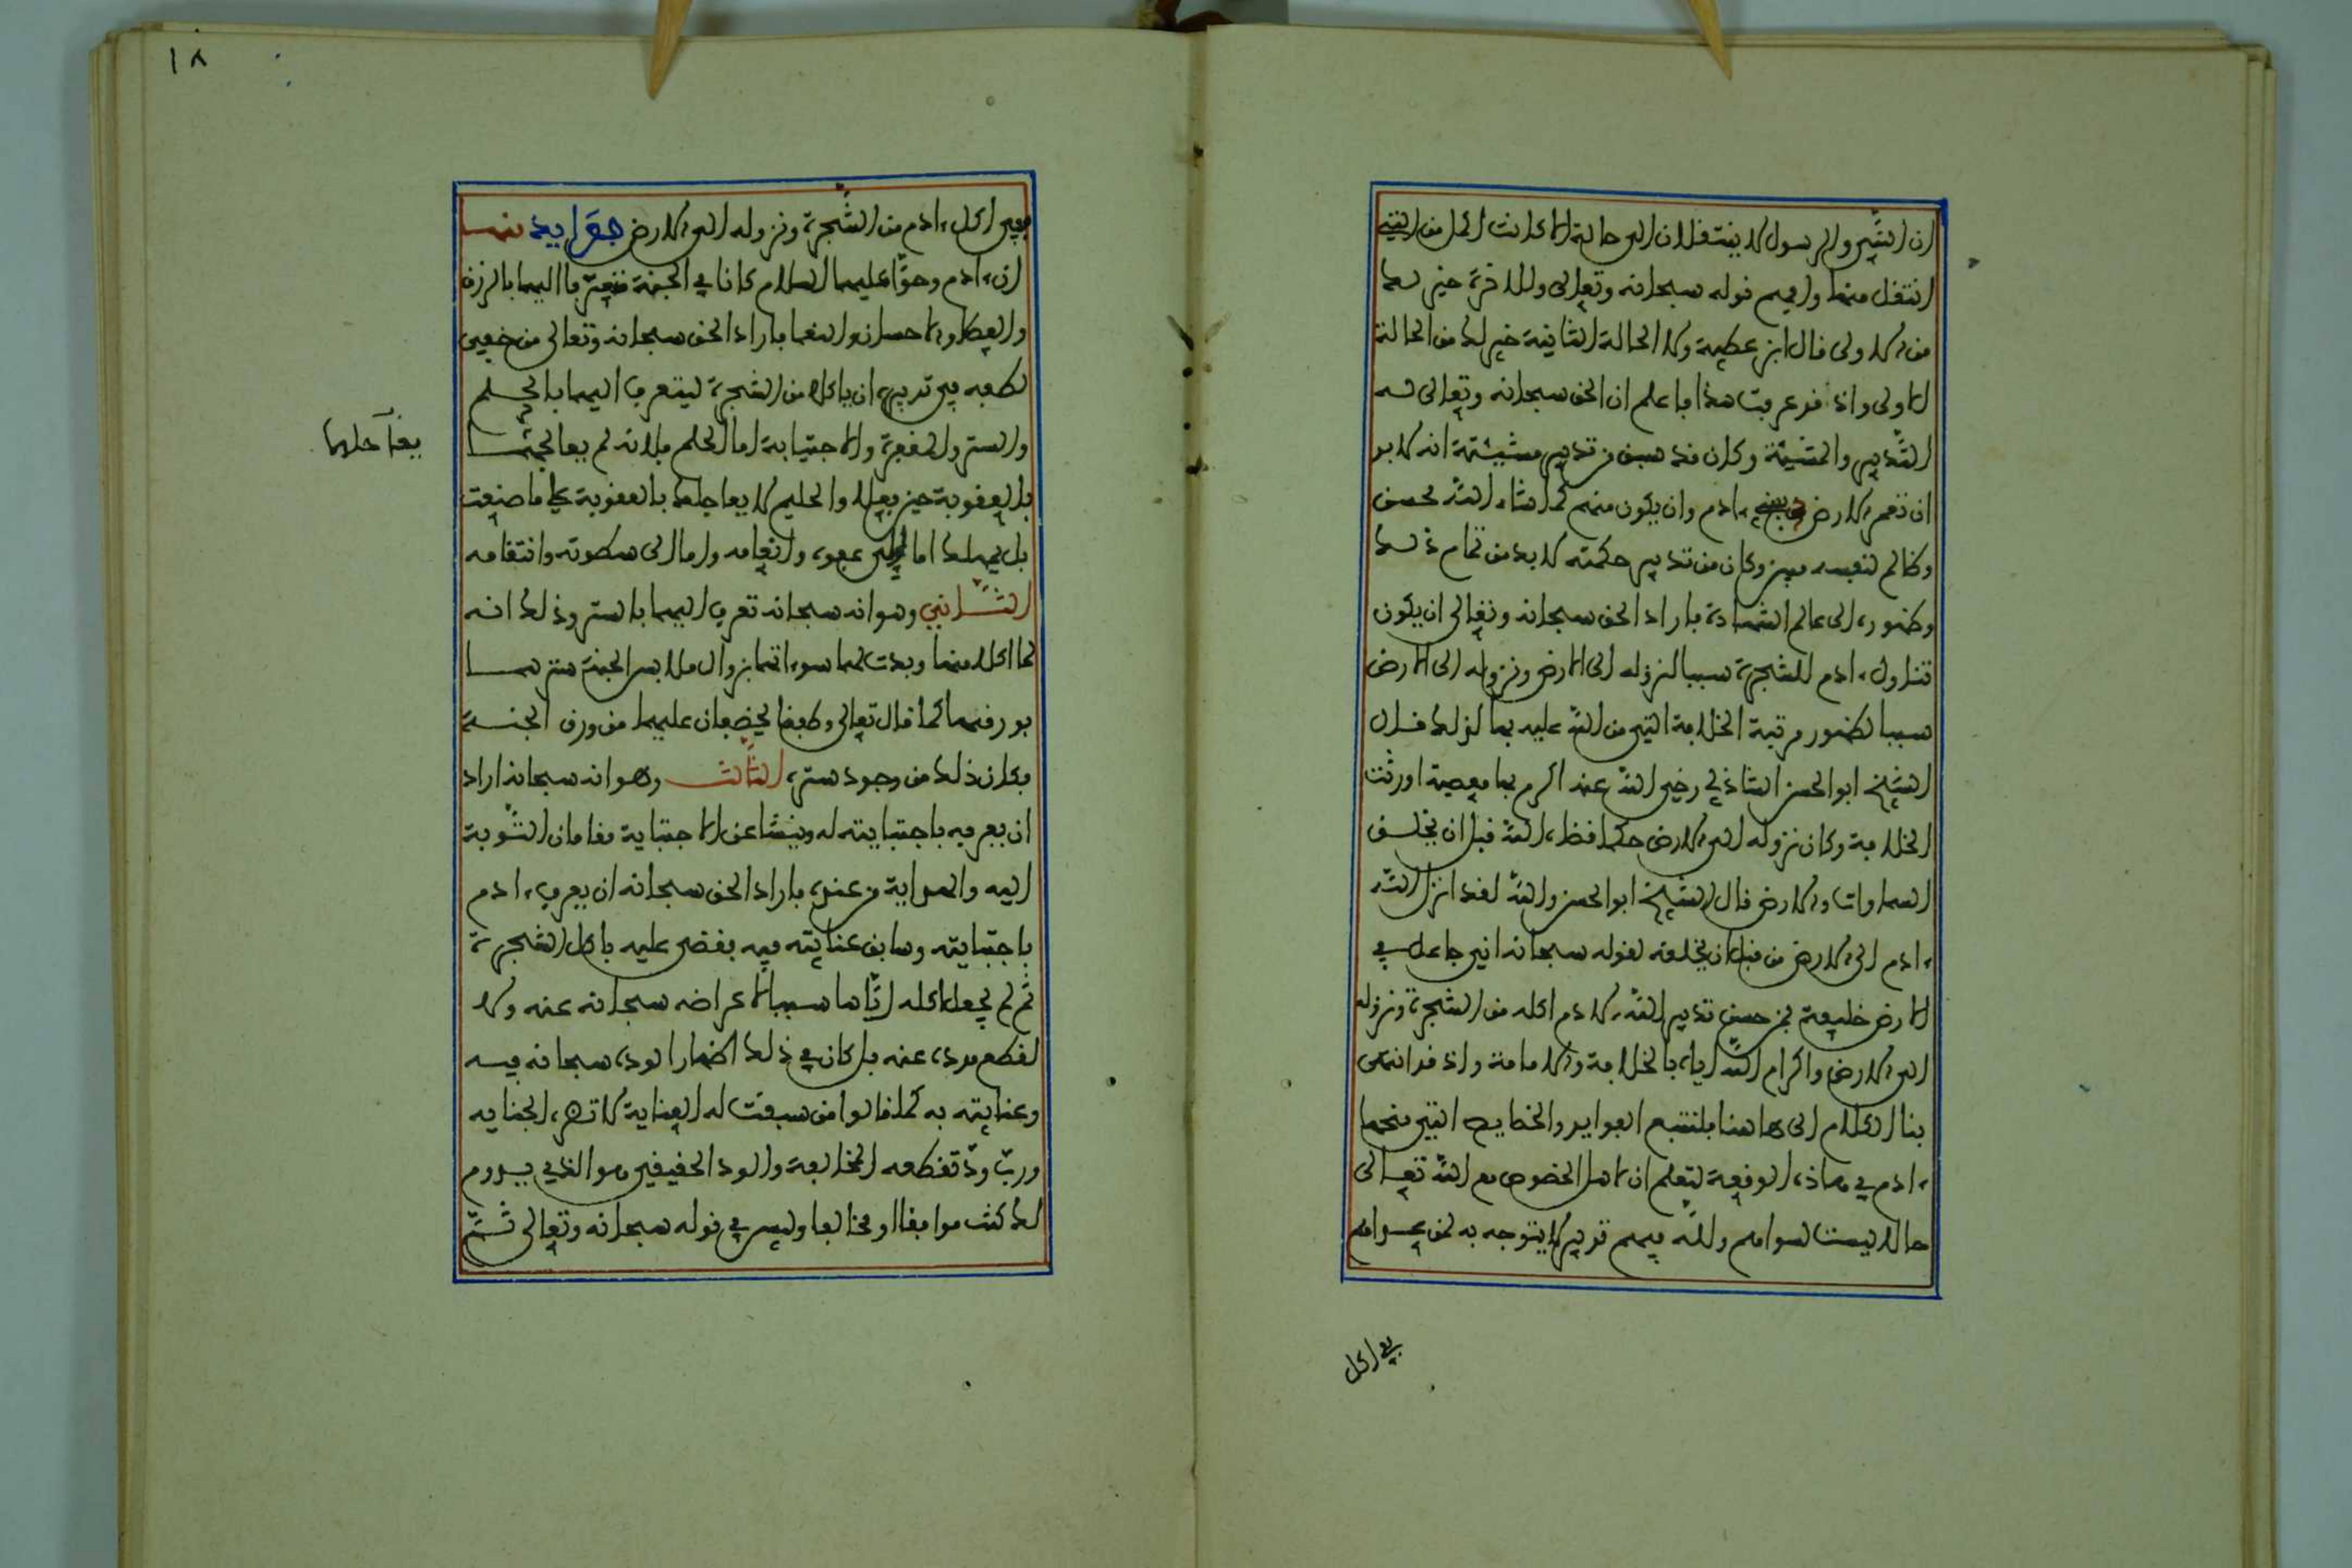 ان النبي والرسول لا ينتقلان الى حالة الا كانت اكمل من التي
انتقل منها وافهم قوله سبحانه وتعالى وللاخرة خير لك
من الاولى قال ابن عطية ولا الحالة الثانية خير لك من الحالة
الاولى واذ قد عرفت هذا فاعلم ان الحق سبحانه وتعالى له
التدبير والمشيئة وكان قد سبق من تدبير مشيئته انه لا بد
ان تعمر الارض ببني ءادم وان يكون منهم كما شاء الله محسن
وظالم لنفسه مبين وكان من تدبير حكمته لا بد من تمام ذلك
وظهوره الى عالم الشهادة فاراد الحق سبحانه وتعالى ان يكون
تناول ءادم للشجرة سببا لنزوله الى الارض ونزوله الى الارض
سببا لظهور مرتبة الخلافة التي من الله عليه بها لذلك قال
الشيخ ابو الحسن الشاذلي رضي الله عنه اكرم بها معصية اورثت
الخلافة وكان نزوله الى الارض حكما قضاه الله قبل ان يخلق
السماوات والارض قال الشيخ ابو الحسن والله لقد انزل الله
ءادم الى الارض من قبل ان يخلقه لقوله سبحانه اني جاعل في
الارض خليفة فمن حسن تدبير الله لادم اكله من الشجرة ونزوله
الى الارض واكرام الله اياه بالخلافة والامامة واذ قد انتهى
بنا الكلام الى هاهنا فلنتبع الفوايد والخصايص التي منحها
ءادم في هاذه الوقعة لتعلم ان لاهل الخصوص مع الله تعالى
حالا ليست لسواهم ولله فيهم تدبير لا يتوجه به لمن عداهم
في اكل
١٨
ففي اكل ءادم من الشجرة ونزوله الى الارض فوايد منها
ان ءادم وحوا عليهما السلام كانا في الجنة فتعرف اليهما بالرزق
والعطاء والاحسان والنعما فاراد الحق سبحانه وتعالى من خفي
لطفه في تدبيره ان ياكلا من الشجرة ليتعرف اليهما بالحلم
والستر والمغفرة والاجتباية اما الحلم فلانه لم يعاجلهما
يعاجلهما
بالعقوبة حين فعلا والحليم لا يعاجلك بالعقوبة على ما صنعت
بل يمهلك اما الى عفوه وانعامه واما الى سطوته وانتقامه
الثاني وهو انه سبحانه تعرف اليهما بالستر وذلك انه
لما اكلا منها وبدت لهما سوءاتهما بزوال ملابس الجنة سترهما
بورقها كما قال تعالى وطفقا يخصفان عليهما من ورق الجنة
فكان ذلك من وجود ستره الثالث وهو انه سبحانه اراد
ان يعرفه باجتبايته له وينشا عن الاجتباية مقامان التوبة
اليه والهداية من عنده فاراد الحق سبحانه ان يعرف ءادم
باجتبايته وسابق عنايته فيه فقضى عليه باكل الشجرة
ثم لم يجعل اكله اياها سببا لاعراضه سبحانه عنه ولا
لقطع مدده عنه بل كان في ذلك اظهارا لوده سبحانه فيه
وعنايته به كما قالوا من سبقت له العناية لا تضره الجناية
ورب ود تقطعه المخالفة والود الحقيقي هو الذي يدوم
لك كنت موافقا او مخالفا وليس في قوله سبحانه وتعالى ثم